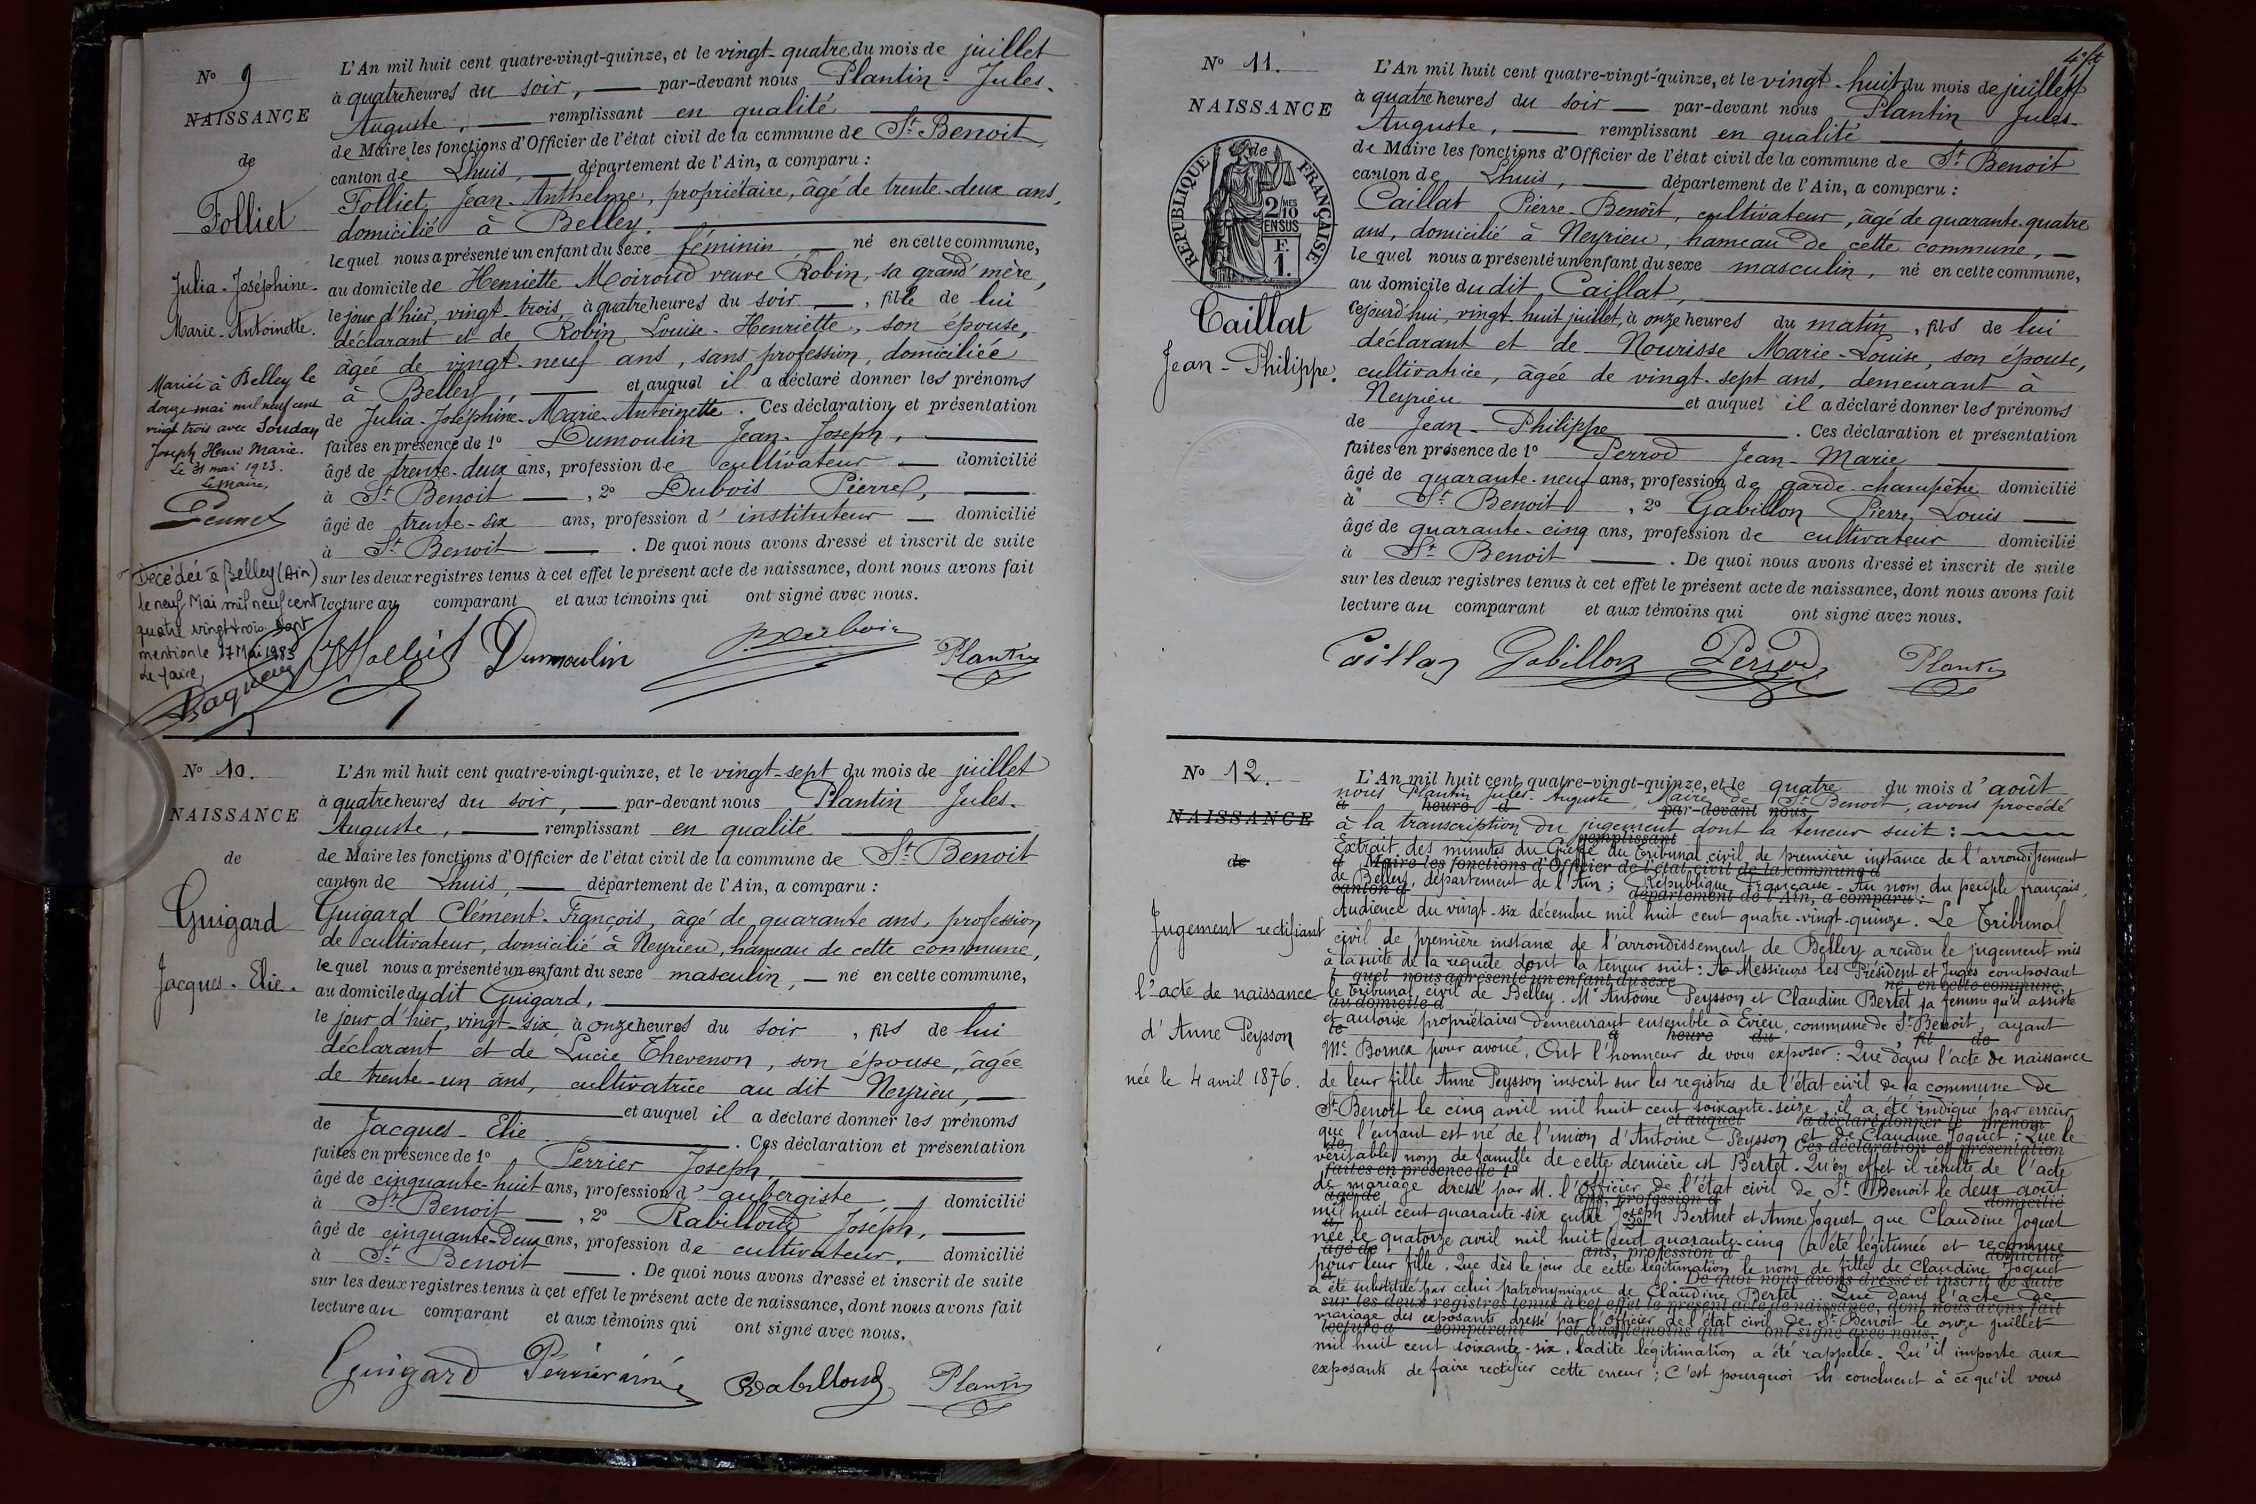 N° 9
NAISSANCE
de
Folliet
Julia-Joséphine-
Marie-Antoinette.
Mariée à Belley le
douze mai mil neuf cent
vingt trois avec Soudan
Joseph Henri Marie.
Le 31 mai 1923.
Le Maire,
Décédée à Belley (Ain)
le neuf Mai mil neuf cent
quatre vingt trois. Dont
mention le 17 Mai 1983
Le Maire,
L'An mil huit cent quatre-vingt-quinze, et le vingt-quatre du mois de juillet
à quatre heures du soir, par-devant nous Plantin Jules-
Auguste, remplissant en qualité
de Maire les fonctions d'Officier de l'état civil de la commune de St Benoit
canton de Lhuis, département de l'Ain, a comparu :
Folliet Jean-Anthelme, propriétaire, âgé de trente-deux ans,
domicilié à Belley.
lequel nous a présenté un enfant du sexe féminin né en cette commune,
au domicile de Henriette Moiroud veuve Robin, sa grand'mère,
le jour d'hier, vingt-trois, à quatre heures du soir, fille de lui
déclarant et de Robin Louise-Henriette, son épouse,
âgée de vingt-neuf ans, sans profession, domiciliée
à Belley, et auquel il a déclaré donner les prénoms
de Julia-Joséphine-Marie-Antoinette. Ces déclaration et présentation
faites en présence de 1° Dumoulin Jean-Joseph,
âgé de trente-deux ans, profession de cultivateur domicilié
à St Benoit, 2° Dubois Pierre,
âgé de trente-six ans, profession d'instituteur domicilié
à St Benoit. De quoi nous avons dressé et inscrit de suite
sur les deux registres tenus à cet effet le présent acte de naissance, dont nous avons fait
lecture au comparant et aux témoins qui ont signé avec nous.
Folliet Dumoulin P. Dubois Plantin
N° 10.
NAISSANCE
de
Guigard
Jacques-Elie.
L'An mil huit cent quatre-vingt-quinze, et le vingt-sept du mois de juillet
à quatre heures du soir, par-devant nous Plantin Jules-
Auguste, remplissant en qualité
de Maire les fonctions d'Officier de l'état civil de la commune de St Benoit
canton de Lhuis, département de l'Ain, a comparu :
Guigard Clément-François, âgé de quarante ans, profession
de cultivateur, domicilié à Neyrieu, hameau de cette commune,
lequel nous a présenté un enfant du sexe masculin, né en cette commune,
au domicile du dit Guigard,
le jour d'hier, vingt-six, à onze heures du soir, fils de lui
déclarant et de Lucie Thevenon, son épouse, âgée
de trente-un ans, cultivatrice au dit Neyrieu,
et auquel il a déclaré donner les prénoms
de Jacques-Elie. Ces déclaration et présentation
faites en présence de 1° Perrier Joseph,
âgé de cinquante-huit ans, profession d'aubergiste, domicilié
à St Benoit, 2° Rabilloud Joseph,
âgé de cinquante-deux ans, profession de cultivateur, domicilié
à St Benoit. De quoi nous avons dressé et inscrit de suite
sur les deux registres tenus à cet effet le présent acte de naissance, dont nous avons fait
lecture au comparant et aux témoins qui ont signé avec nous.
Guigard Perrier aîné Rabilloud Plantin
N° 11.
NAISSANCE
de
RÉPUBLIQUE FRANÇAISE
2 MES
10
EN SUS
F.
1.
Caillat
Jean-Philippe.
L'An mil huit cent quatre-vingt-quinze, et le vingt-huit du mois de juillet
à quatre heures du soir par-devant nous Plantin Jules-
Auguste, remplissant en qualité
de Maire les fonctions d'Officier de l'état civil de la commune de St Benoit
canton de Lhuis, département de l'Ain, a comparu :
Caillat Pierre-Benoît, cultivateur, âgé de quarante-quatre
ans, domicilié à Neyrieu, hameau de cette commune,
lequel nous a présenté un enfant du sexe masculin, né en cette commune,
au domicile du dit Caillat,
cejourd'hui, vingt-huit juillet, à onze heures du matin, fils de lui
déclarant et de Nourisse Marie-Louise, son épouse,
cultivatrice, âgée de vingt-sept ans, demeurant à
Neyrieu et auquel il a déclaré donner les prénoms
de Jean-Philippe. Ces déclaration et présentation
faites en présence de 1° Perrod Jean-Marie
âgé de quarante-neuf ans, profession de garde-champêtre domicilié
à St Benoit, 2° Gabillon Pierre Louis
âgé de quarante-cinq ans, profession de cultivateur domicilié
à St Benoit. De quoi nous avons dressé et inscrit de suite
sur les deux registres tenus à cet effet le présent acte de naissance, dont nous avons fait
lecture au comparant et aux témoins qui ont signé avec nous.
Caillat Gabillon Perrod Plantin
N° 12.
NAISSANCE
de
Jugement rectifiant
l'acte de naissance
d'Anne Peysson
née le 4 avril 1876.
L'An mil huit cent quatre-vingt-quinze, et le quatre du mois d'août
nous Plantin Jules-Auguste, Maire de St Benoit, avons procédé
à heure d par-devant nous
à la transcription du jugement dont la teneur suit :
remplissant
Extrait des minutes du Greffe du Tribunal civil de première instance de l'arrondissement
d Maire les fonctions d'Officier de l'état civil de la commune d
de Belley, département de l'Ain ; République Française - Au nom du peuple français,
canton d département de l'Ain, a comparu :
Audience du vingt-six décembre mil huit cent quatre-vingt-quinze. Le Tribunal
civil de première instance de l'arrondissement de Belley a rendu le jugement mis
à la suite de la requête dont la teneur suit : A Messieurs les Président et Juges composant
l quel nous a présenté un enfant du sexe né en cette commune,
le Tribunal civil de Belley. Mr Antoine Peysson et Claudine Bertet sa femme qu'il assiste
au domicile d
et autorise propriétaires demeurant ensemble à Evieu, commune de St Benoit, ayant
le à heure du fil de
Me Bornex pour avoué, Ont l'honneur de vous exposer : Que dans l'acte de naissance
de leur fille Anne Peysson inscrit sur les registres de l'état civil de la commune de
St Benoit le cinq avril mil huit cent soixante-seize, il a été indiqué par erreur
et auquel a déclaré donner le prénom
que l'enfant est né de l'union d'Antoine Peysson et de Claudine Joguet. Que le
de Ces déclaration et présentation
véritable nom de famille de cette dernière est Bertet. Qu'en effet il résulte de l'acte
faites en présence de 1°
de mariage dressé par M. l'officier de l'état civil de St Benoit le deux août
âgé de ans, profession d domicilié
mil huit cent quarante-six entre Joseph Berthet et Anne Joguet, que Claudine Joguet
à 2°
née le quatorze avril mil huit cent quarante-cinq a été légitimée et reconnue
âgé de ans, profession d domicilié
pour leur fille. Que dès le jour de cette légitimation le nom de fille de Claudine Joguet
à De quoi nous avons dressé et inscrit de suite
a été substitué par celui patronymique de Claudine Bertet. Que dans l'acte de
sur les deux registres tenus à cet effet le présent acte de naissance, dont nous avons fait
mariage des exposants dressé par l'officier de l'état civil de St Benoit le onze juillet
lecture a comparant et aux témoins qui ont signé avec nous.
mil huit cent soixante-six, ladite légitimation a été rappelée. Qu'il importe aux
exposants de faire rectifier cette erreur ; C'est pourquoi ils concluent à ce qu'il vous